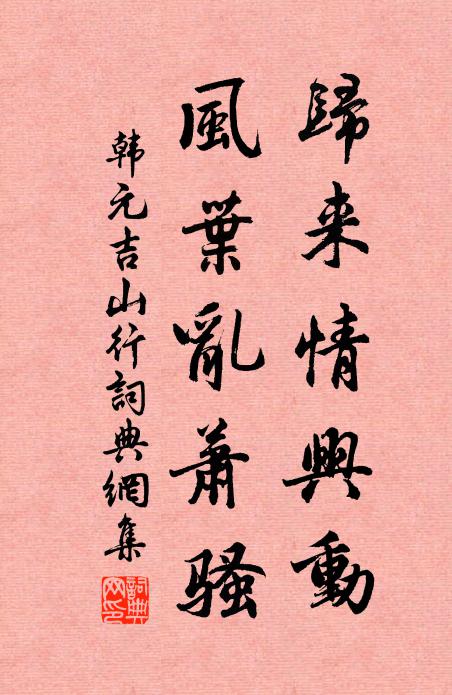 歸来情興動
風葉亂蕭騷
韩元吉山行詞典網集
詞典网印